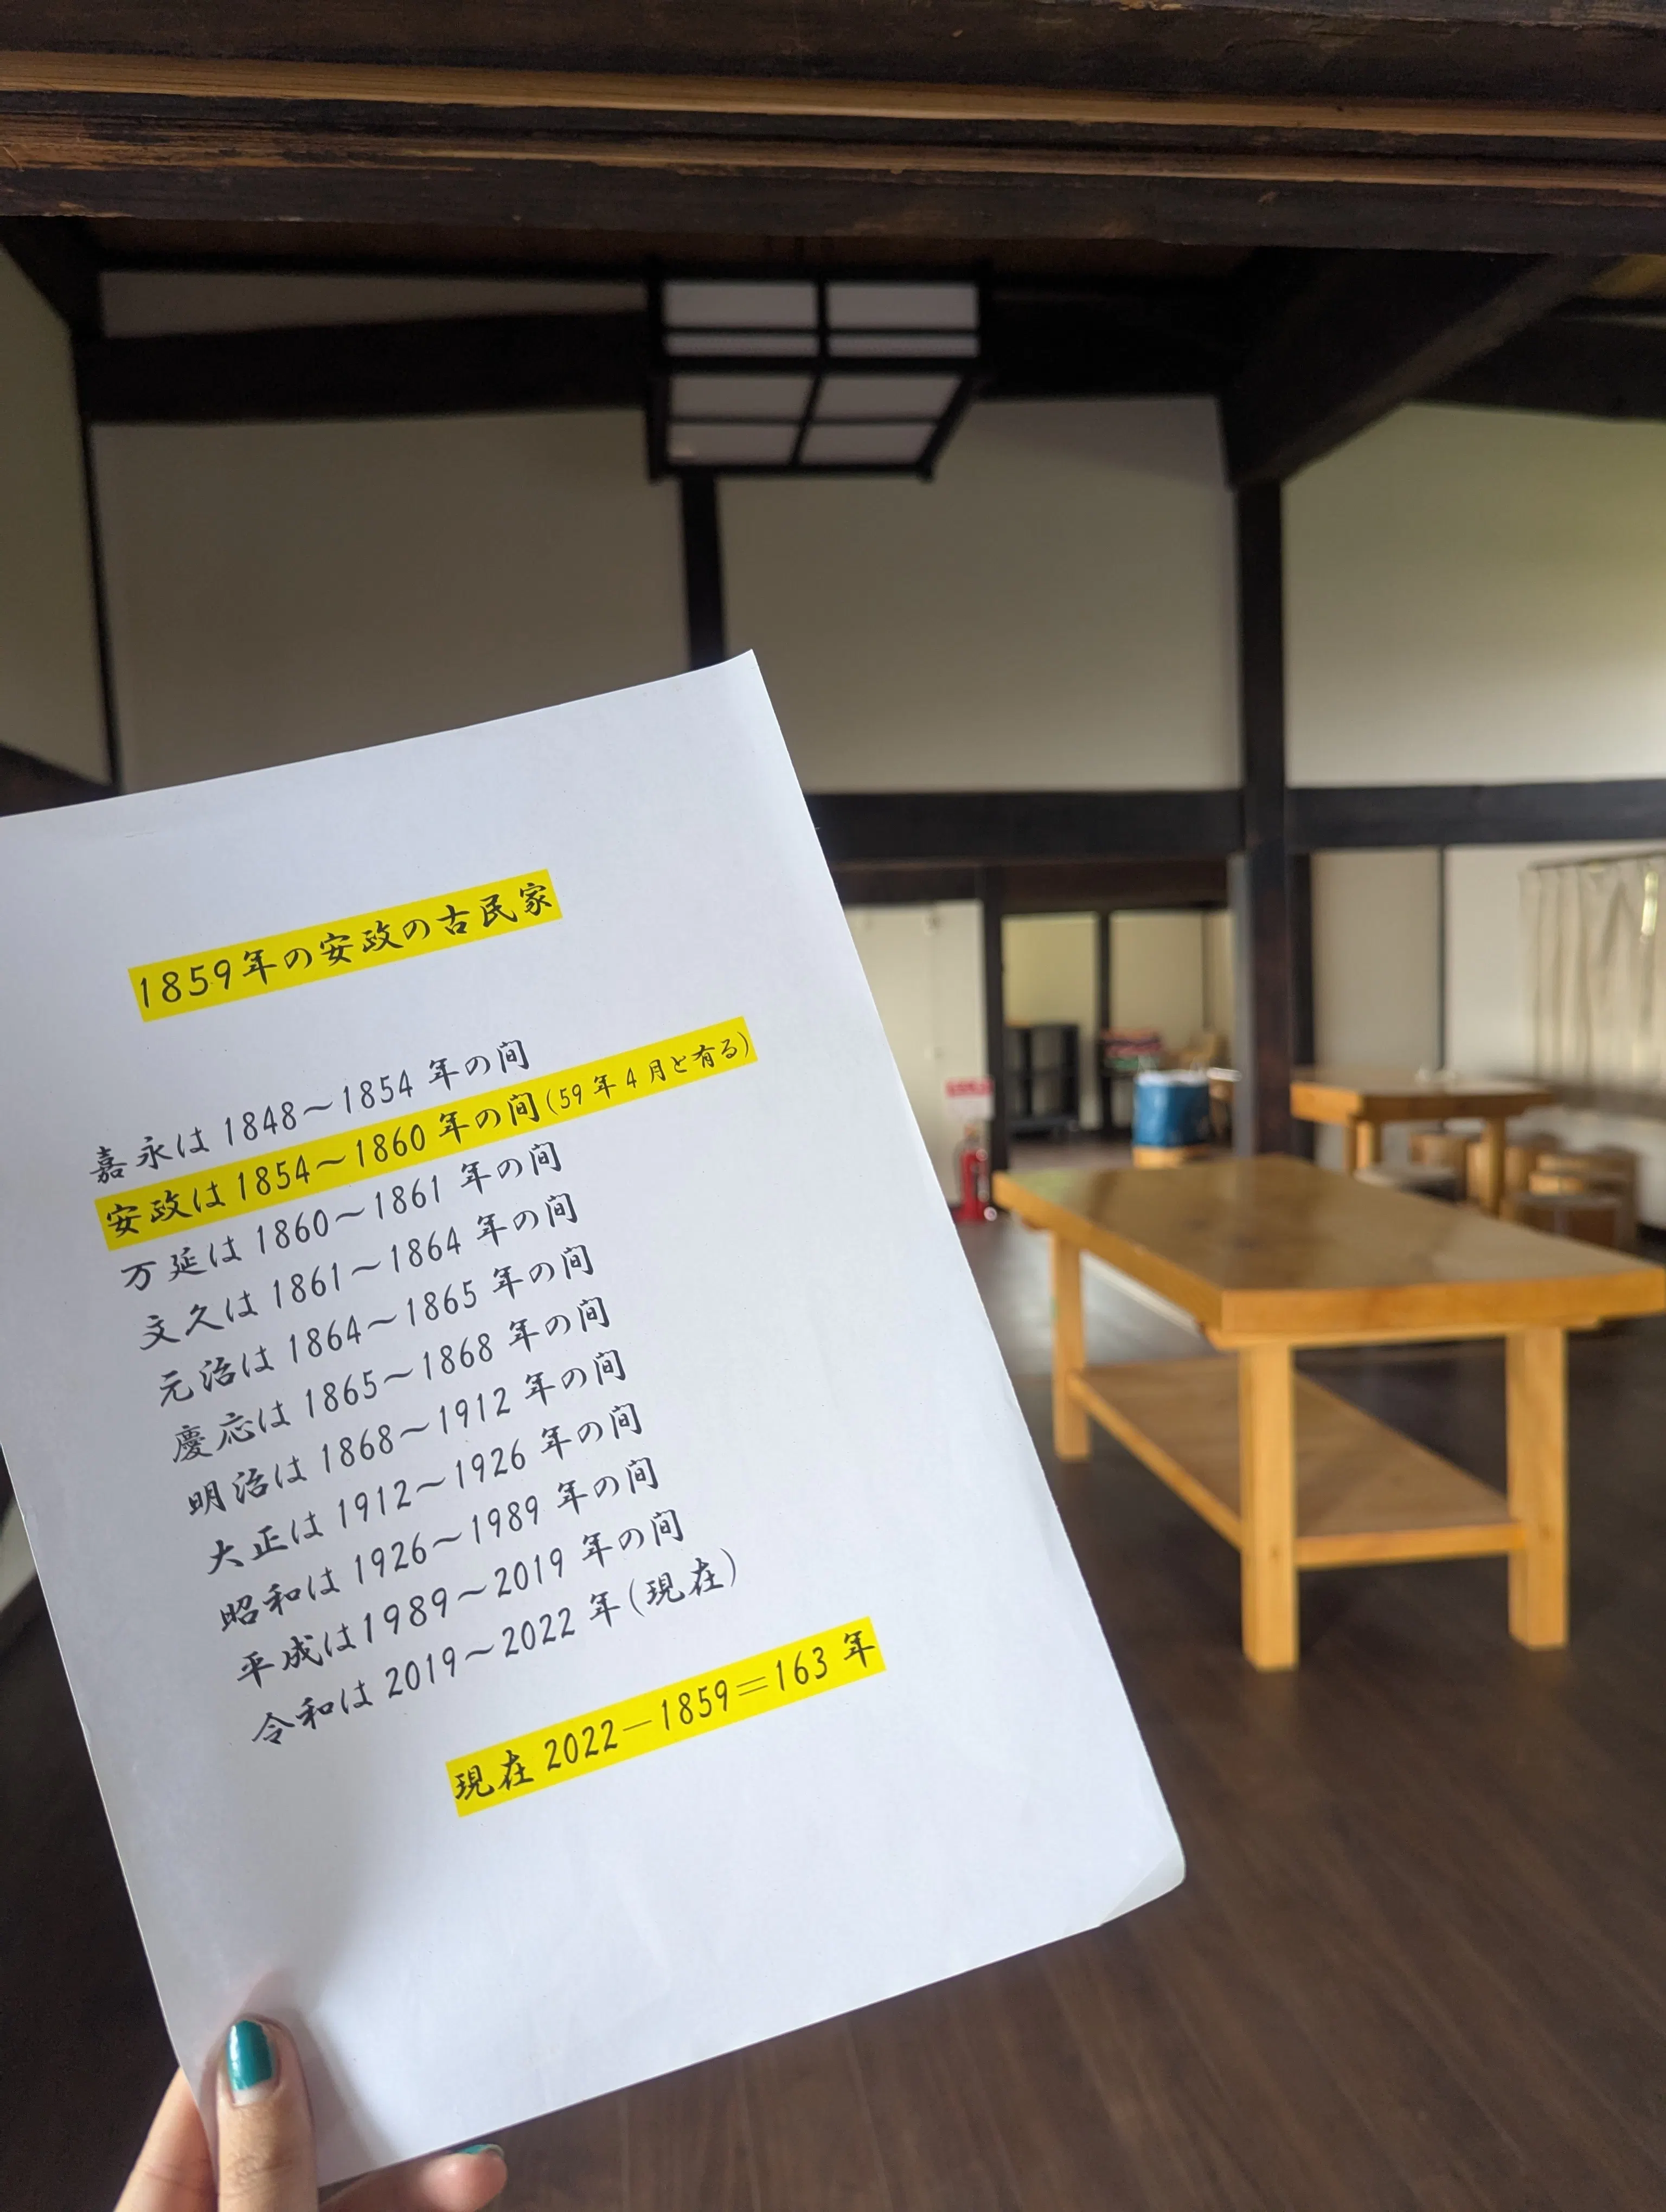 1859年の安政の古民家
嘉永は1848～1854年の間
安政は1854～1860年の間(59年4月と有る)
万延は1860～1861年の間
文久は1861～1864年の間
元治は1864～1865年の間
慶応は1865～1868年の間
明治は1868～1912年の間
大正は1912～1926年の間
昭和は1926～1989年の間
平成は1989～2019年の間
令和は2019～2022年(現在)
現在2022－1859＝163年